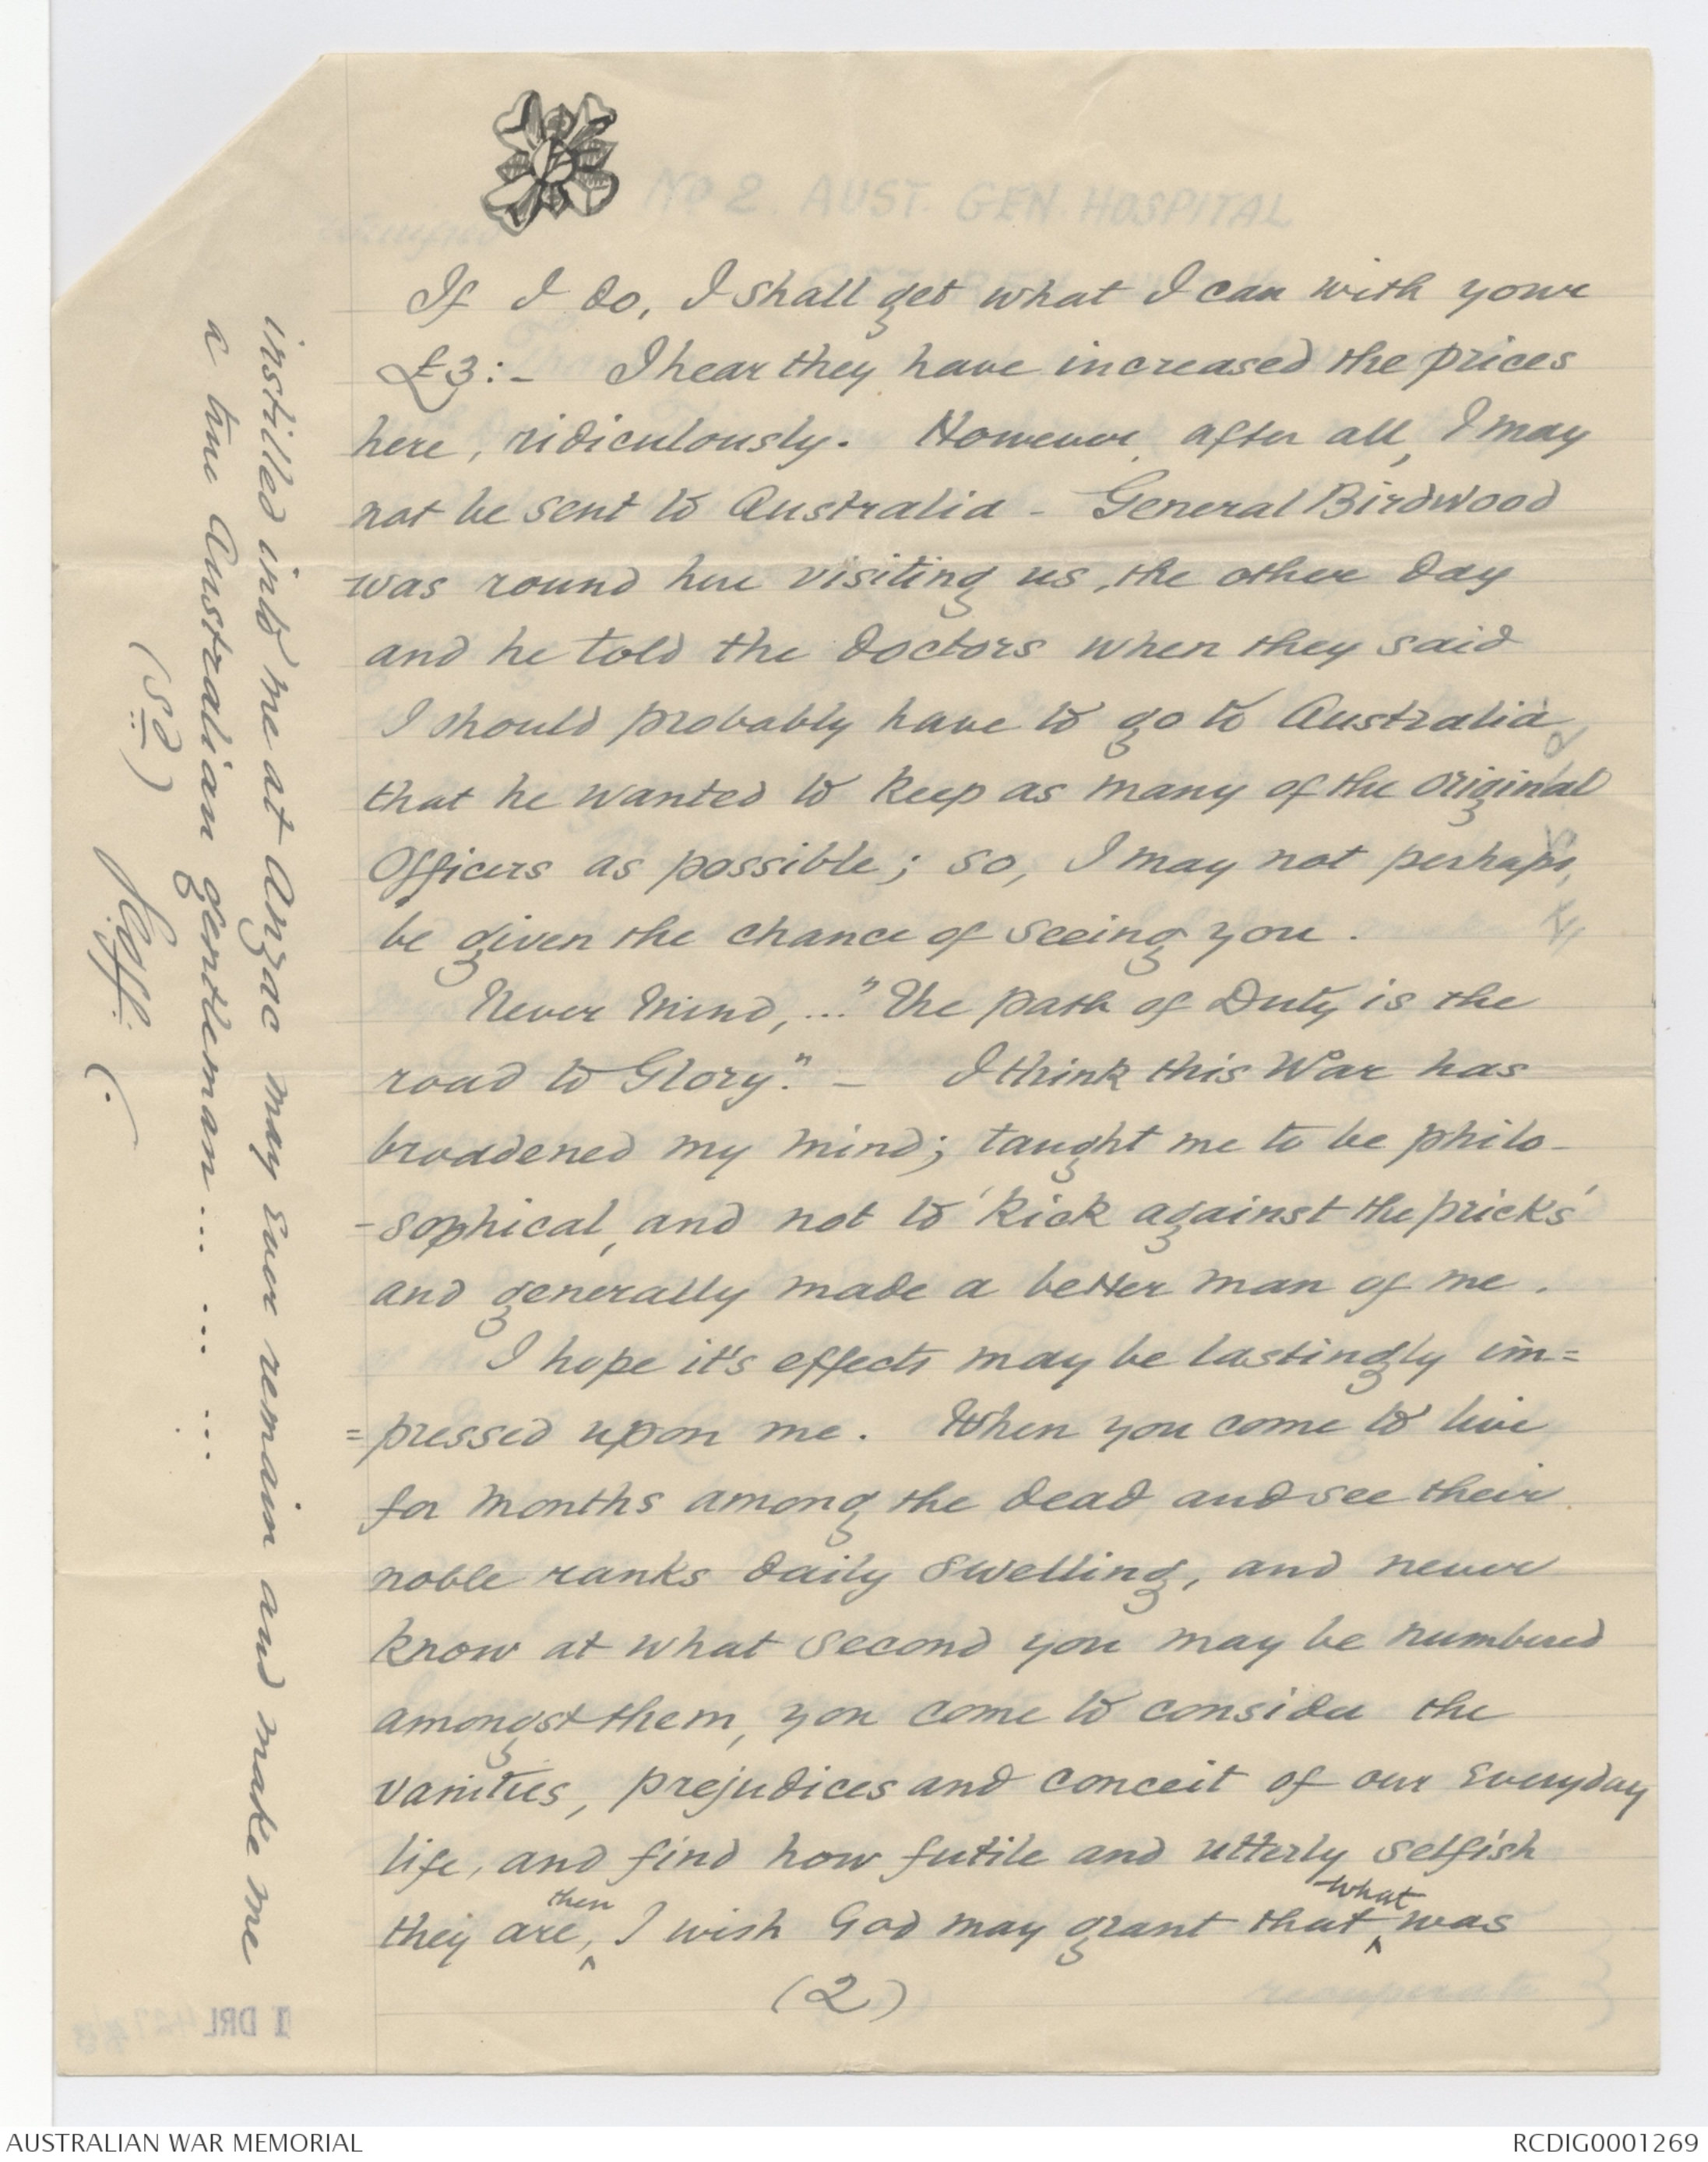 If I do, I shall get what I can with your
£3:- I hear they have increased the prices
here, ridiculously. However, after all, I may
not be sent to Australia - General Birdwood
was round here visiting us, the other day
and he told the doctors when they said
I should probably have to go to Australia,
that he wanted to keep as many of the original
Officers as possible; so, I may not perhaps,
be given the chance of seeing you.
Never Mind,..."The path of Duty is the
road to Glory." - I think this War has
broadened my mind; taught me to be philo-
-sophical, and not to 'kick against the pricks'
and generally made a better man of me.
I hope it's effects may be lastingly im=
=pressed upon me. When you come to live
for months among the dead and see their
noble ranks daily swelling, and never
know at what second you may be numbered
amongst them, you come to consider the
vanities, prejudices and conceit of our everyday
life, and find how futile and utterly selfish
they are, then I wish God may grant that what was
(2)
instilled into me at Anzac may ever remain and make me
a true Australian gentleman... ... ...
(sd)
No 2. AUST. GEN. HOSPITAL
recuperate
1 DRL
AUSTRALIAN WAR MEMORIAL
RCDIG0001269